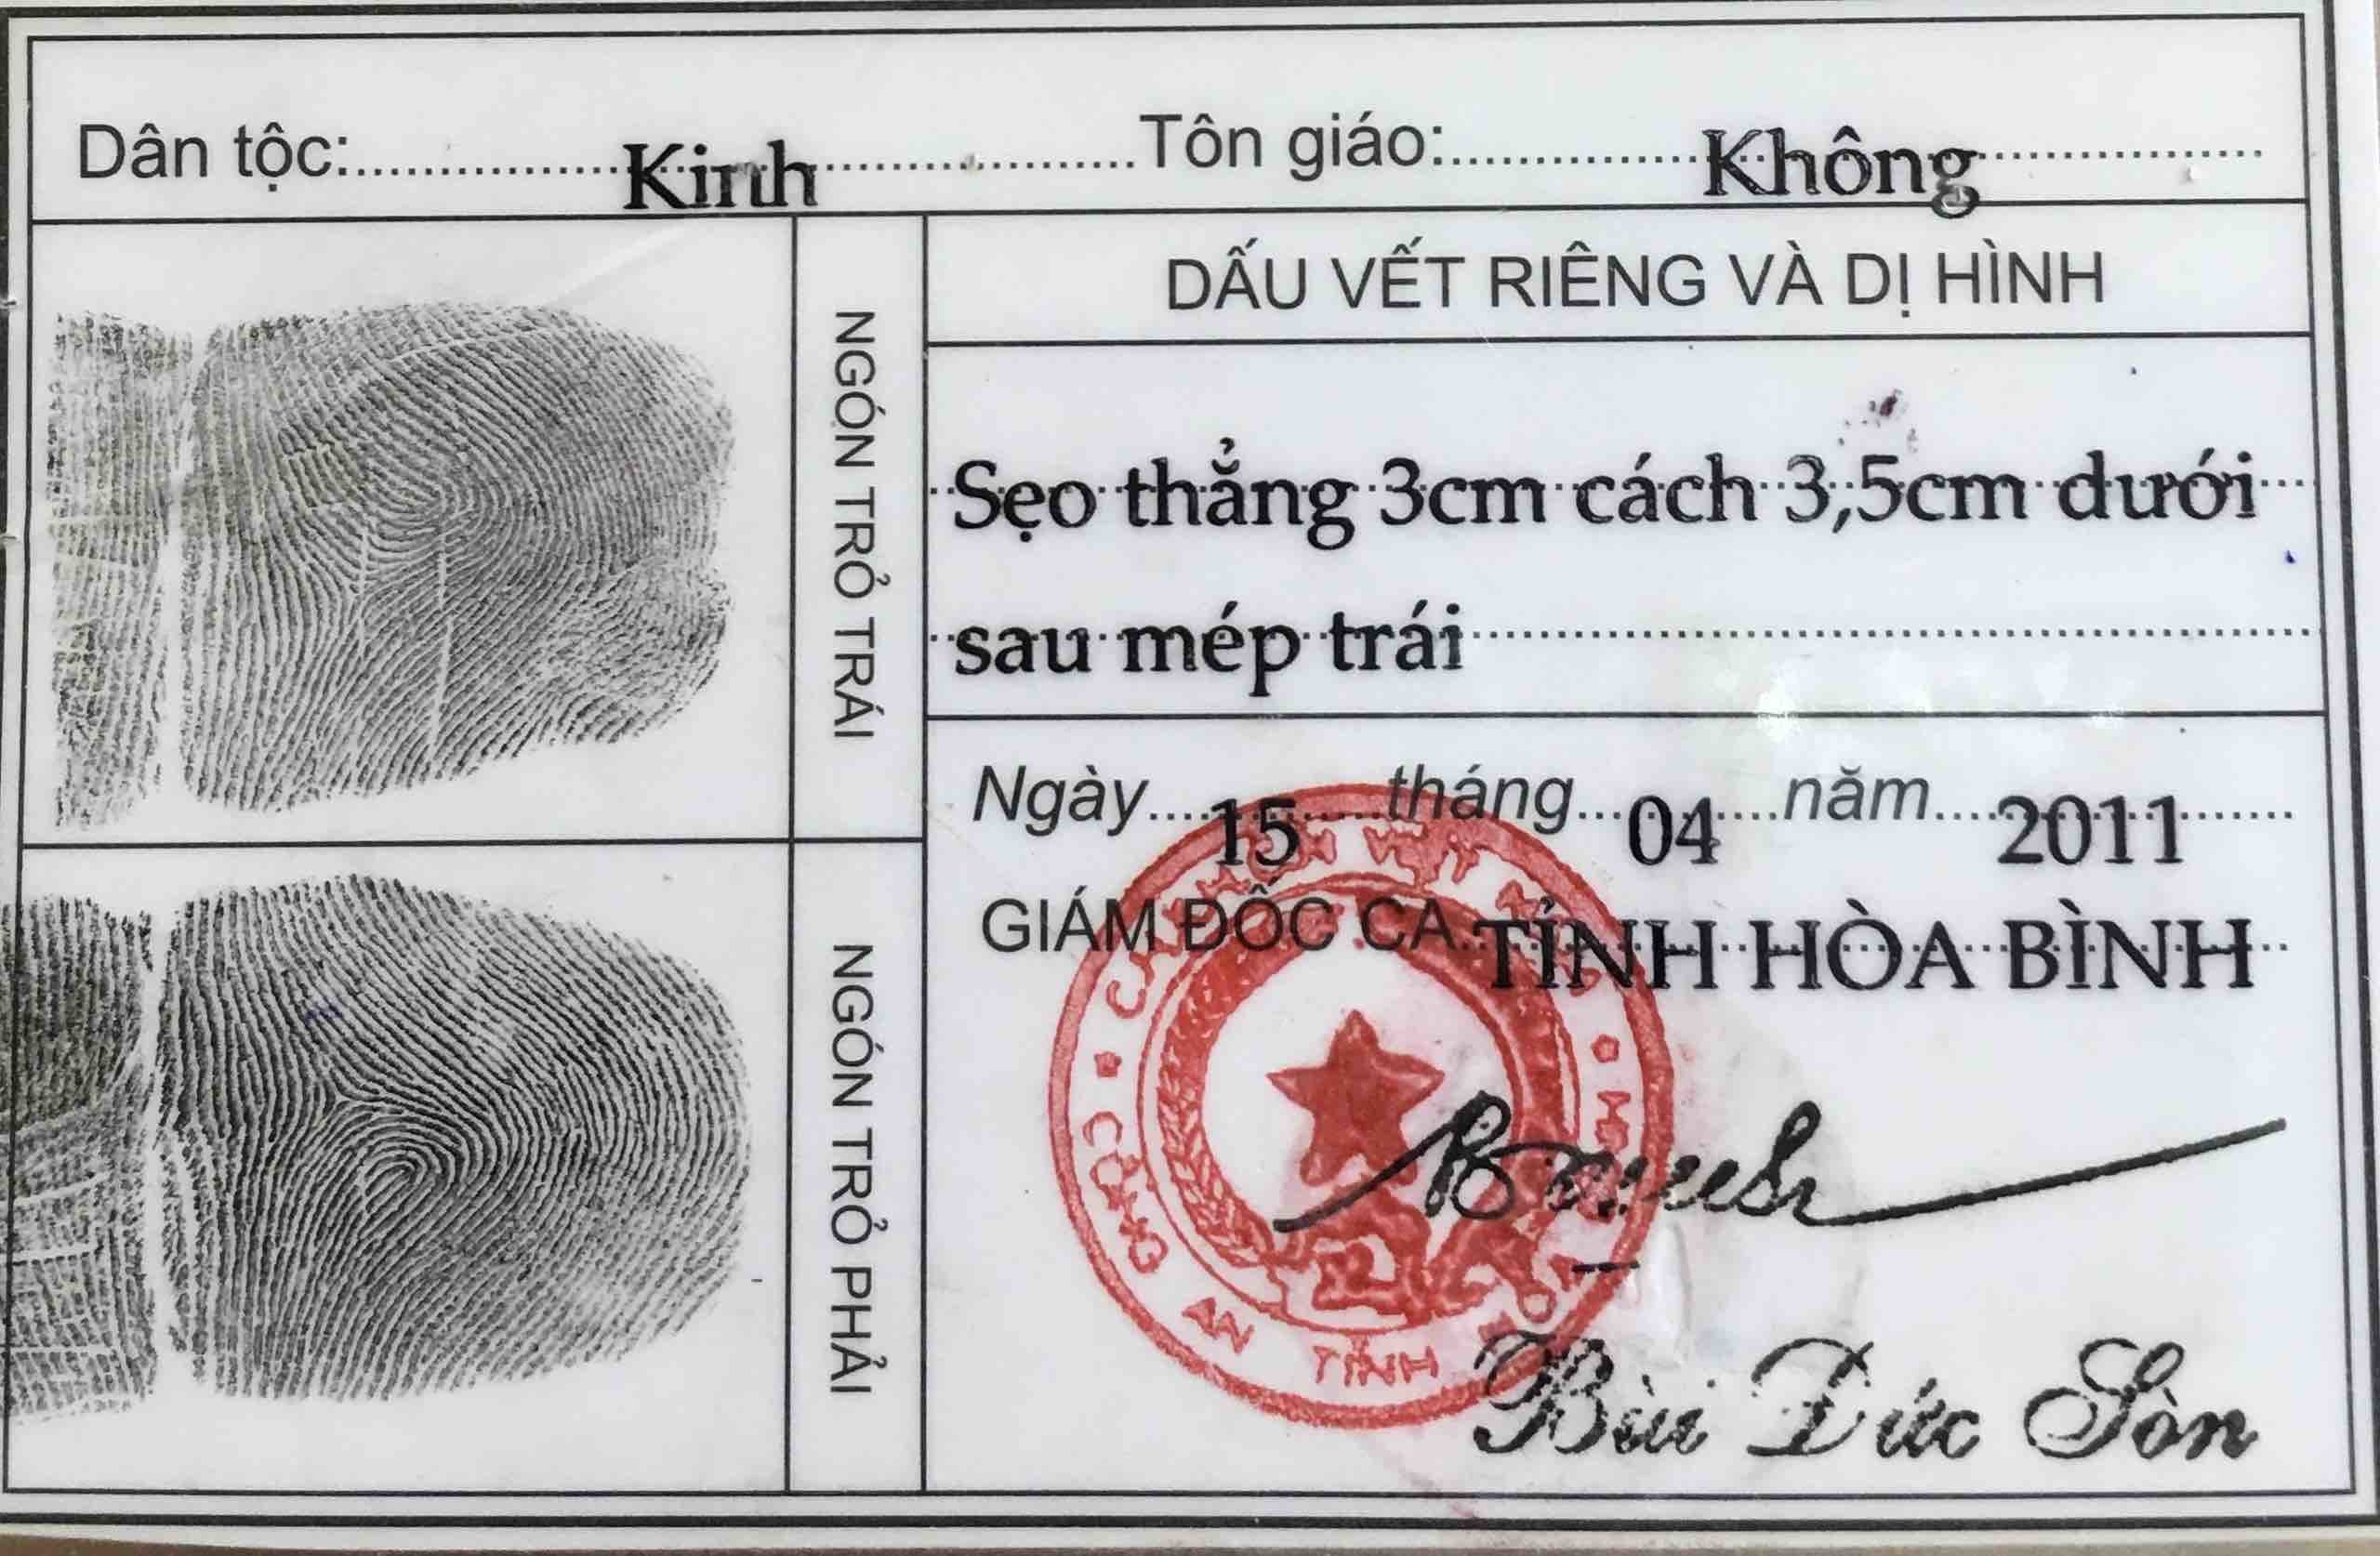 Dân tộc: Kinh Tôn giáo: Không
NGÓN TRỎ TRÁI
DẤU VẾT RIÊNG VÀ DỊ HÌNH
Sẹo thẳng 3cm cách 3,5cm dưới
sau mép trái
NGÓN TRỎ PHẢI
Ngày 15 tháng 04 năm 2011
GIÁM ĐỐC CA TỈNH HÒA BÌNH
CÔNG AN TỈNH
Bùi Đức Sòn